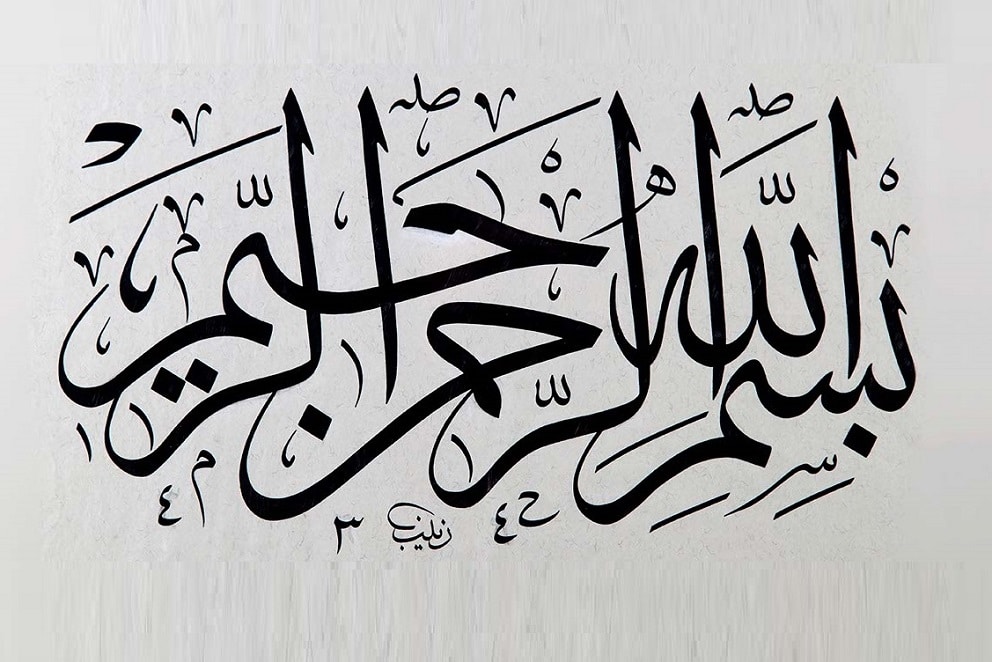 بِسْمِ اللَّهِ الرَّحْمٰنِ الرَّحِيمِ
زينب
١٤٣٤